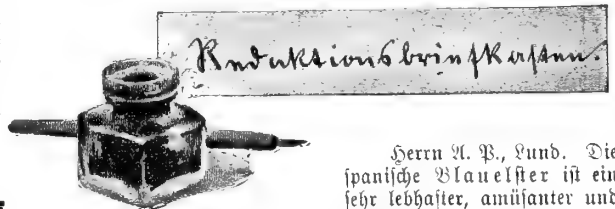 Redaktionsbriefkasten.
Herrn A. P., Lund. Die
spanische Blauelster ist ein
sehr lebhafter, amüsanter und